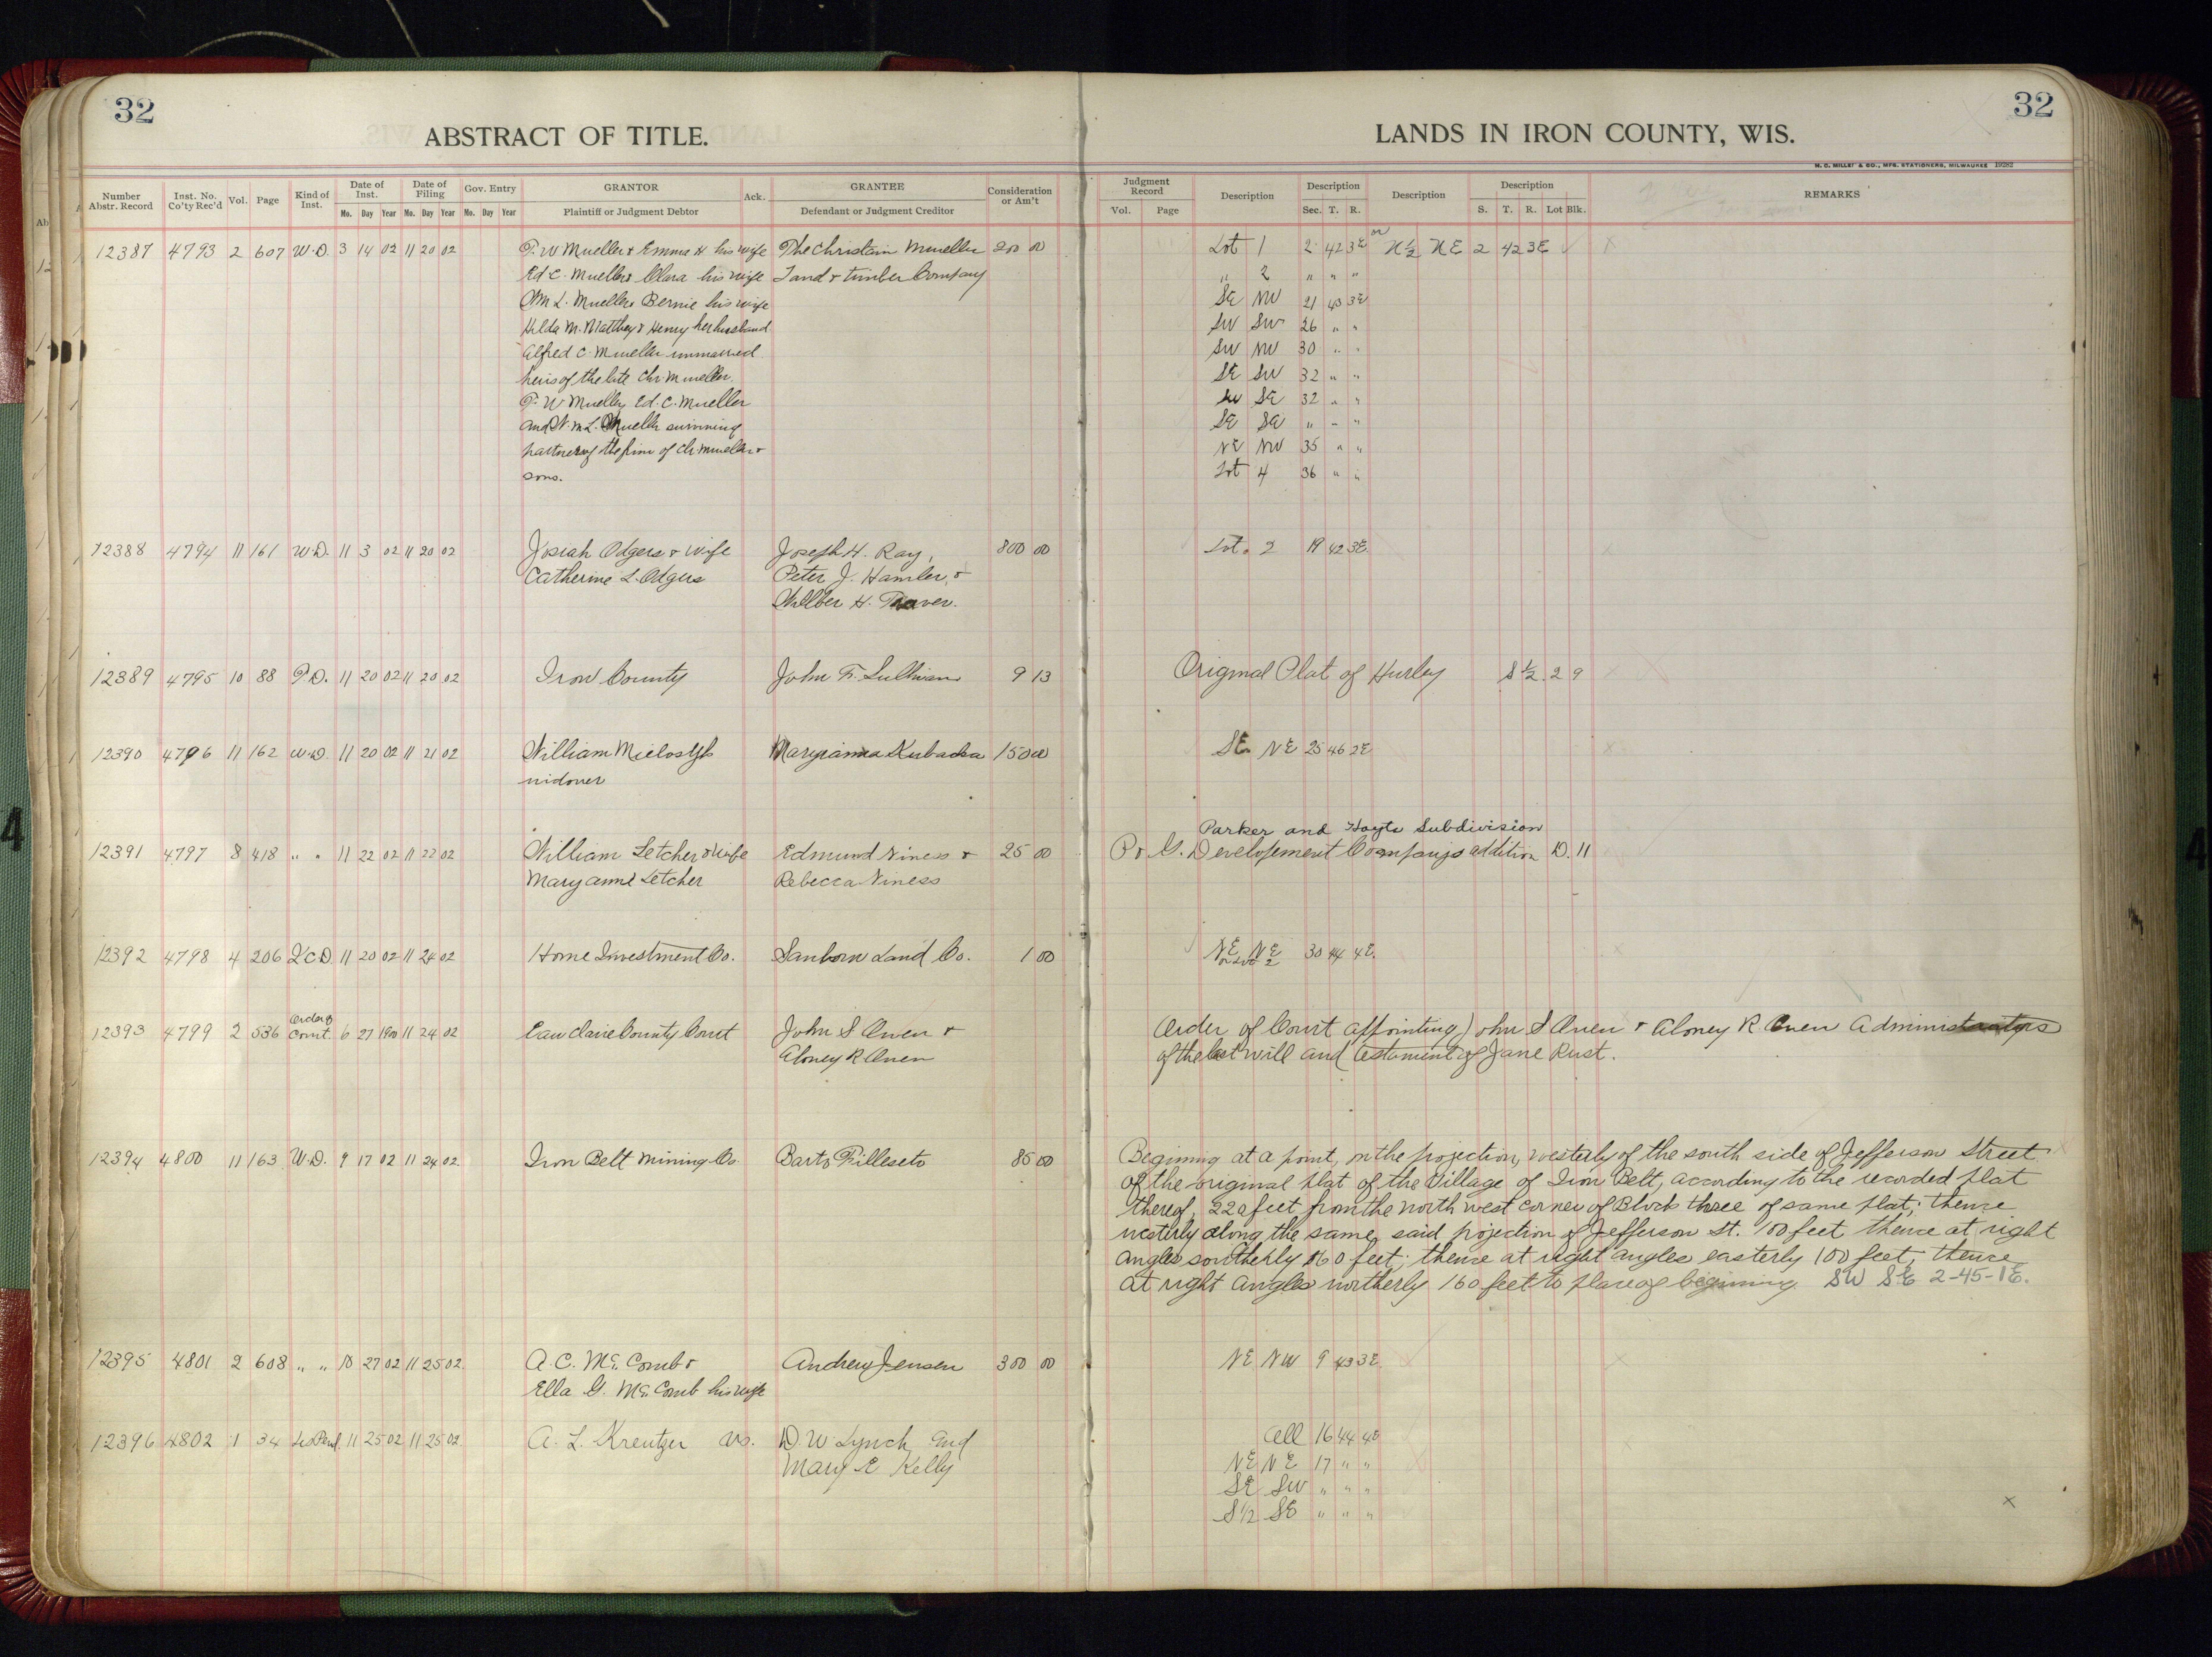 32
ABSTRACT OF TITLE.
Number Abstr. Record Inst. No. Co'ty Rec'd Vol. Page Kind of Inst. Date of Inst. Mo. Day Year Date of Filing Mo. Day Year Gov. Entry Mo. Day Year GRANTOR Plaintiff or Judgment Debtor Ack. GRANTEE Defendant or Judgment Creditor Consideration or Am't
12387 4793 2 607 W.D. 3 14 02 11 20 02 F. W Mueller & Emma H his wife The Christain Mueller 200 00
Ed C. Mueller & Clara his wife Land & timber Company
Wm L. Mueller & Bernie his wife
Hilda M. Matthey & Henry her husband
Alfred C. Mueller unmarried
heirs of the late Chr. Mueller.
F. W Mueller, Ed. C. Mueller
and Wm L. Mueller surviving
partners of the firm of Chr. Mueller &
sons.
12388 4794 11 161 W.D. 11 3 02 11 20 02 Josiah Odgers & wife Joseph H. Ray, 800 00
Catherine L. Odgers Peter J. Hamler, &
Wilber H. Traver.
12389 4795 10 88 11 20 02 11 20 02 Iron County John F. Sullivan 9 13
12390 4796 11 162 W.D. 11 20 02 11 21 02 William Maryianna Kubacka 150 00
widower
12391 4797 8 418 " " 11 22 02 11 22 02 William Letcher & wife Edmund Niness & 25 00
Mary anne Letcher Rebecca Niness
12392 4798 4 206 Q.C.D 11 20 02 11 24 02 Home Investment Co. Sanborn Land Co. 1 00
12393 4799 2 536 Order of Court. 6 27 1900 11 24 02 Eau Claire County Court John S Owen &
Aloney R Owen
12394 4800 11 163 W.D. 9 17 02 11 24 02 Iron Belt Mining Co. Barto Filleseto 85 00
12395 4801 2 608 " " 10 27 02 11 25 02 A. C. McComb & Andrew Jensen 300 00
Ella G. McComb his wife
12396 4802 1 34 Lis Pend 11 25 02 11 25 02 A. L. Kreutzer vs. D. W. Lynch and
Mary E Kelly
32
LANDS IN IRON COUNTY, WIS.
H. C. MILLER & CO., MFG. STATIONERS, MILWAUKEE 19282
Judgment Record Vol. Page Description Description Sec. T. R. Description Description S. T. R. Lot Blk. REMARKS
Lot 1 2 42 3E or N 1/2 NE 2 42 3E
" 2 " " "
SE NW 21 43 3E
SW SW 26 " "
SW NW 30 " "
SE SW 32 " "
SW SE 32 " "
SE SE " " "
NE NW 35 " "
Lot 4 36 " "
Lot. 2 19 42 3E.
Original Plat of Hurley S 1/2 2 9
SE NE 25 46 2E
Parker and Hoyts Subdivision
P & G. Developement Companys addition D. 11
NE NE 30 44 4E.
or Lot 2
Order of Court appointing John S Owen & Aloney R Owen Administrators
of the last will and testament of Jane Rust.
Beginning at a point, on the projection, westerly of the south side of Jefferson Street
of the original plat of the Village of Iron Belt, according to the recorded plat
thereof, 220 feet from the north west corner of Block three of same plat; thence
westerly along the same said projection of Jefferson St. 100 feet thence at right
angles southerly 160 feet; thence at right angles easterly 100 feet, thence
at right angles northerly 160 feet to place of beginning. SW SE 2-45-1E.
NE NW 9 43 3E
All 16 44 4E
NE NE 17 " "
SE SW " " "
S 1/2 SE " " "